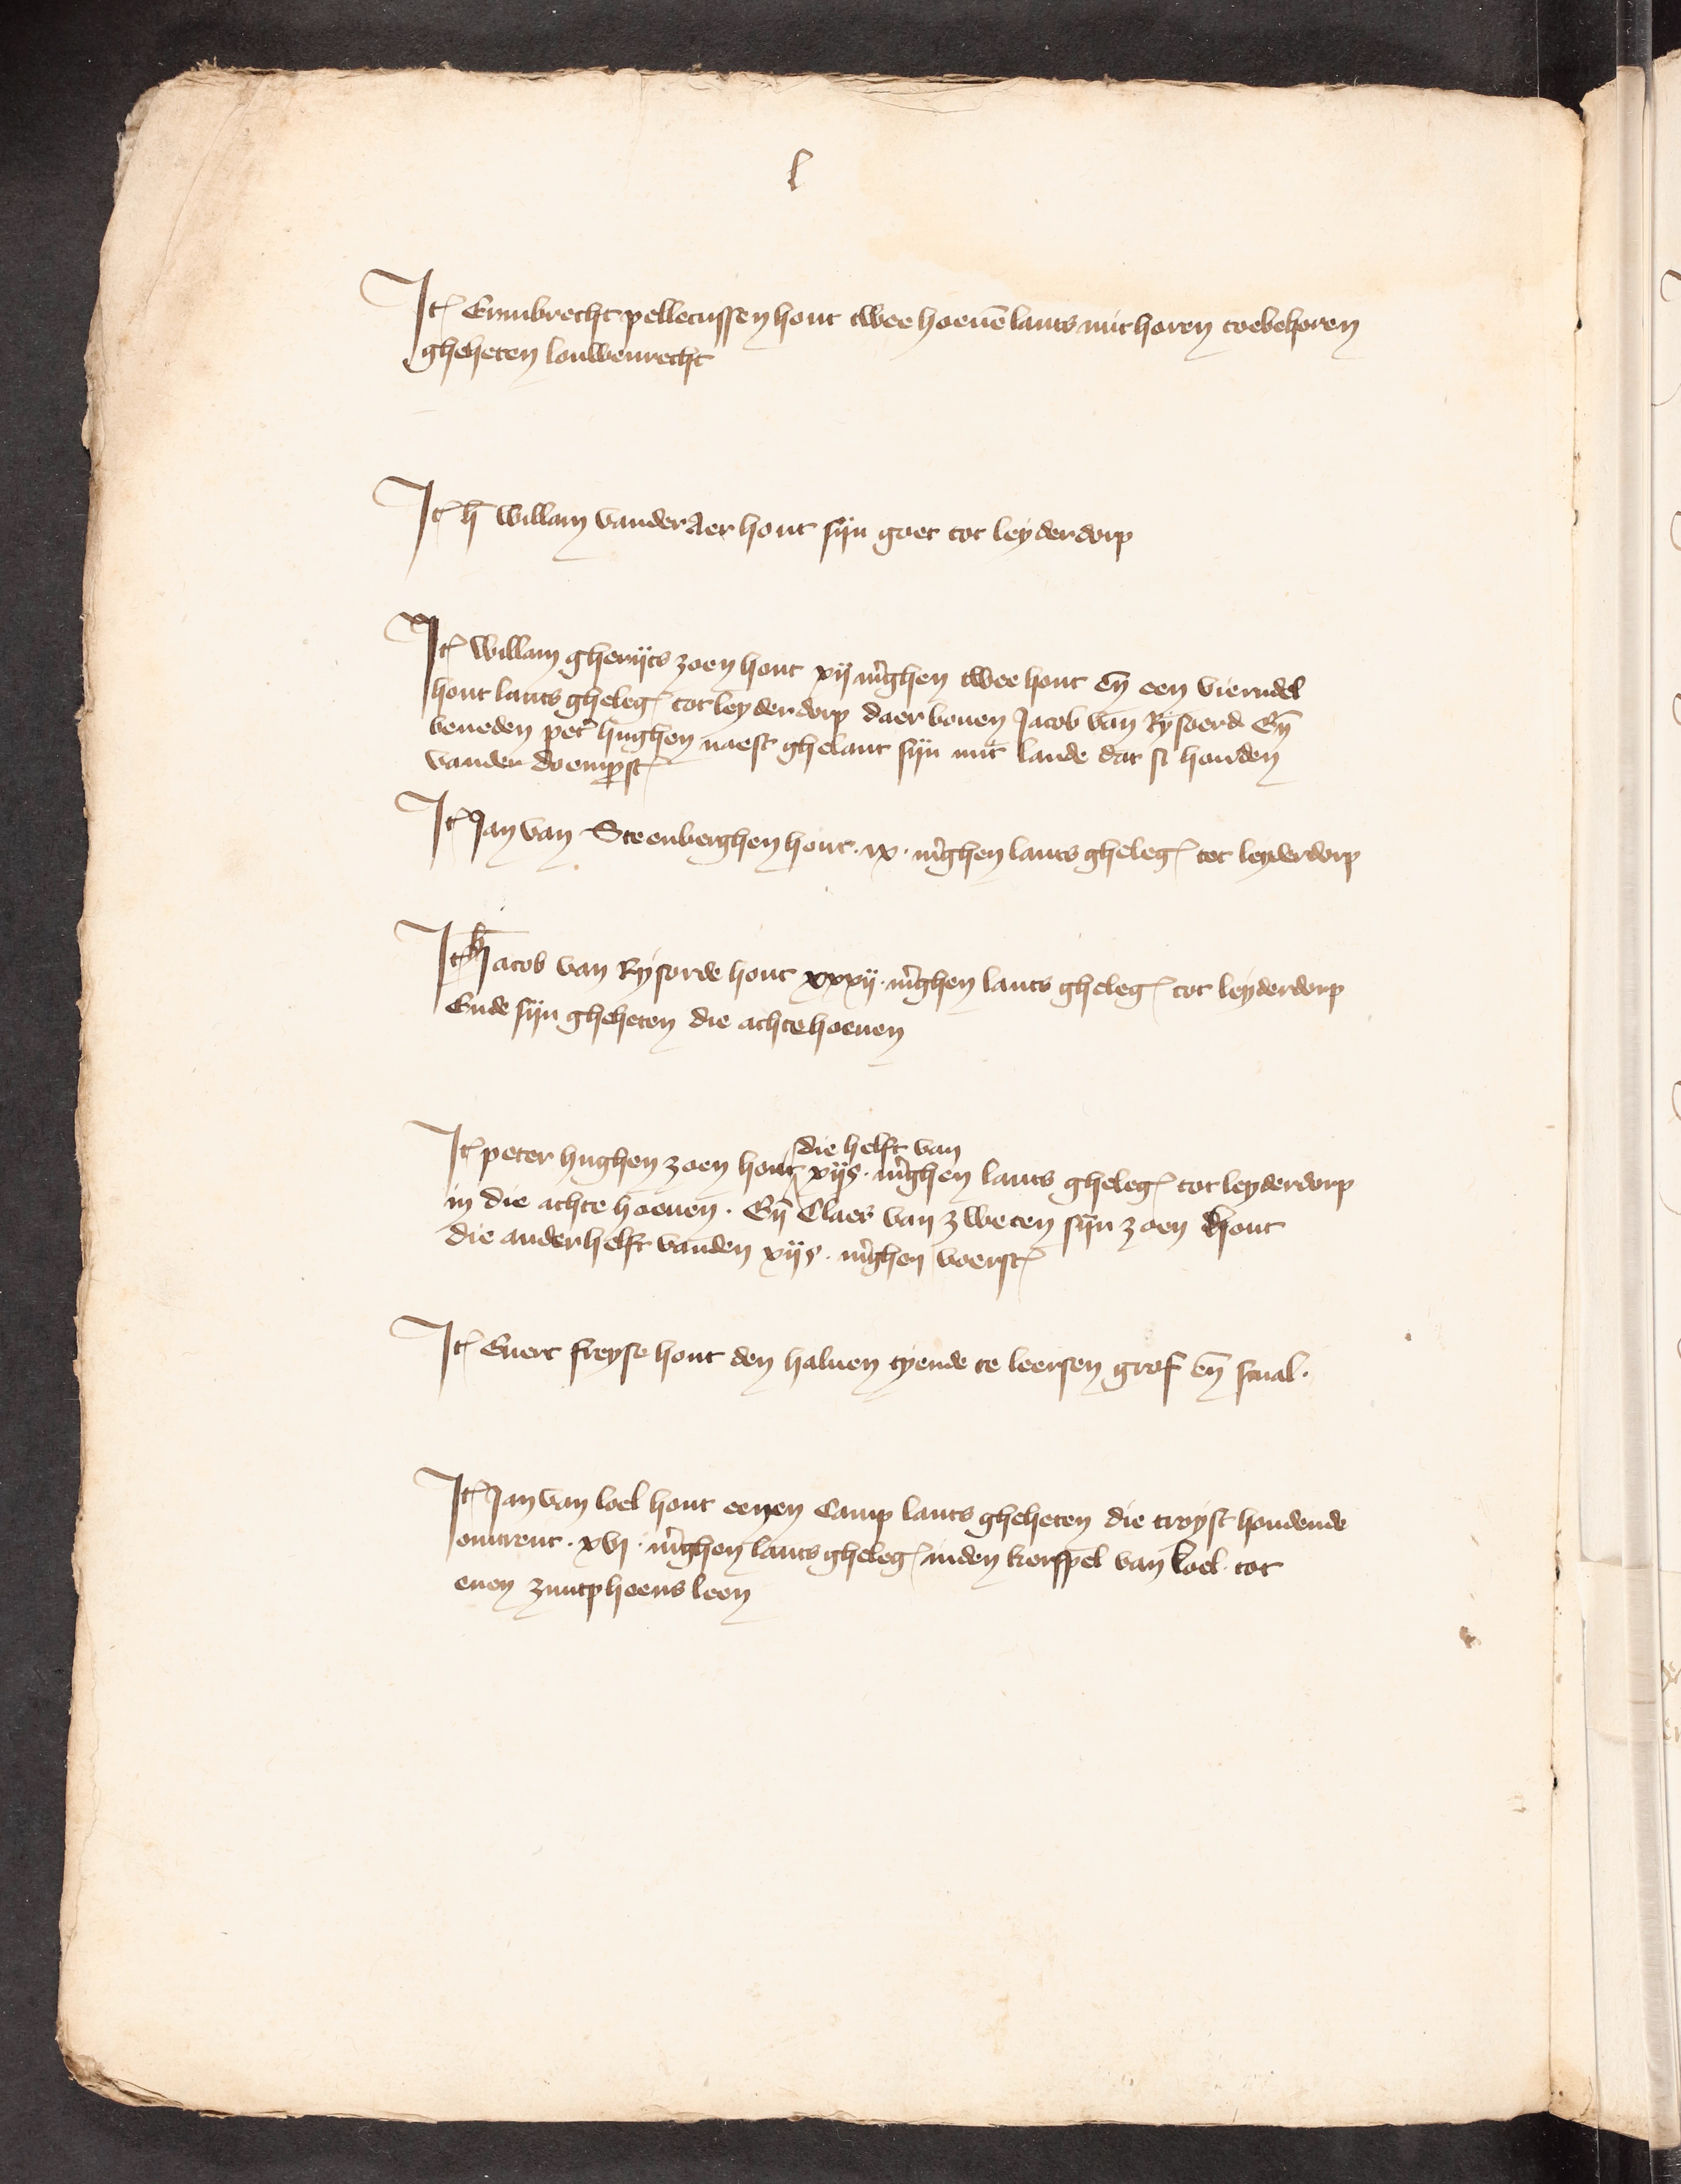 l
Itē Emmbrecht pellecussen hout twee hoeuē lants mit horen toebehoren
gheheten louwenrecht
Itē h̄ willam vander Aer hout sijn goet tot leyderdorp
Itē willam gherijts zoen hout xij m̄ghen twee hont en̄ een vierndel
hont lants ghelegē tot leyderdorp daer bouen Jacob van Rysoerd En̄
beneden pet̄ hughen naest ghelant sijn mit lande dat si houden
vander doemp̄st
Itē Jan van Steenberghen hout . ix . m̄ghen lants ghelegē tot leyderdorp
Itē h̄ Jacob van Rysorde hout xxxij . m̄ghen lants ghelegē tot leyderdorp
Ende sijn gheheten die achtehoeuen
die helft van
Itē peter hughen zoen hout xijs . m̄ghen lants ghelegē tot leyderdorp
in die achte hoeuen . En̄ Claes van zweten sijn zoen hout
die ander helft vanden xijs . m̄ghen voerstē
Itē Euert freyse hout den haluen tyende te leersen grof en̄ smal .
Itē Jan van loel hout eenen Camp lants gheheten die troyst houdende
omtrent . xvj . m̄ghen lants ghelegē inden kerspel van loel . tot
enen zuutpheens leen